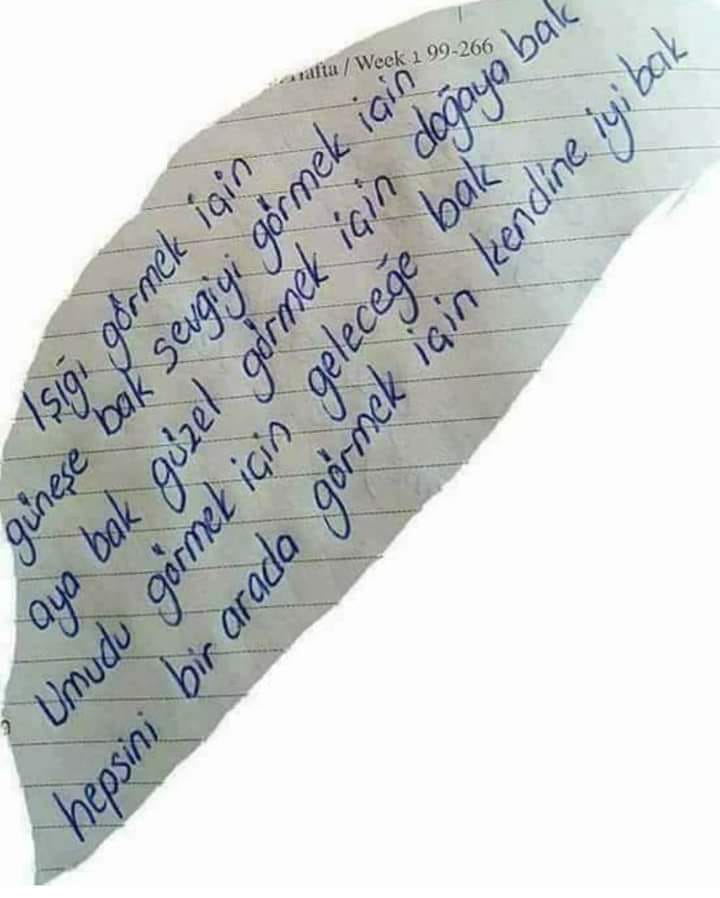 Hafta / Week 1 99-266
Işiği görmek için
güneşe bak sevgiyi görmek için
aya bak güzel görmek için doğaya bak
Umudu görmek için geleceğe bak
hepsini bir arada görmek için kendine iyi bak